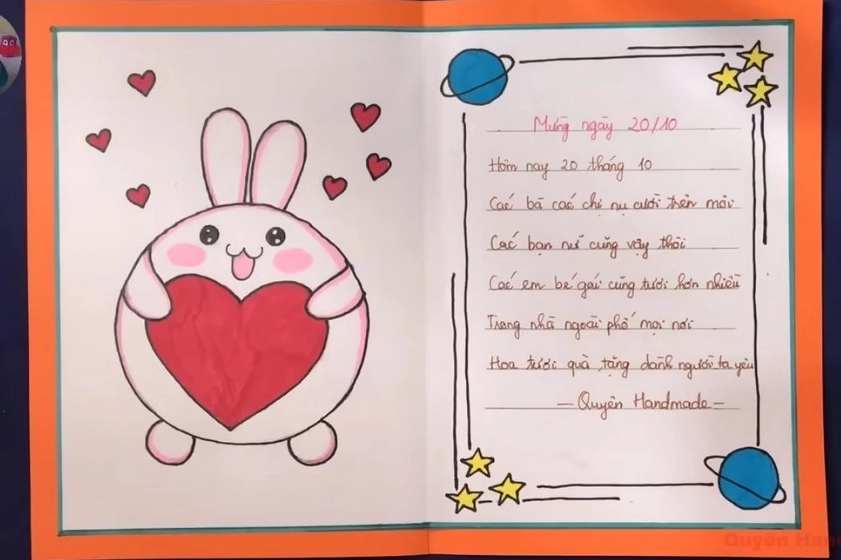 Mừng ngày 20/10
Hôm nay 20 tháng 10
Các bà các chị nụ cười trên môi
Các bạn nữ cũng vậy thôi
Các em bé gái cũng tươi hơn nhiều
Trong nhà ngoài phố mọi nơi
Hoa tươi quà tặng dành người ta yêu
- Quyên Handmade -
Quyên Han